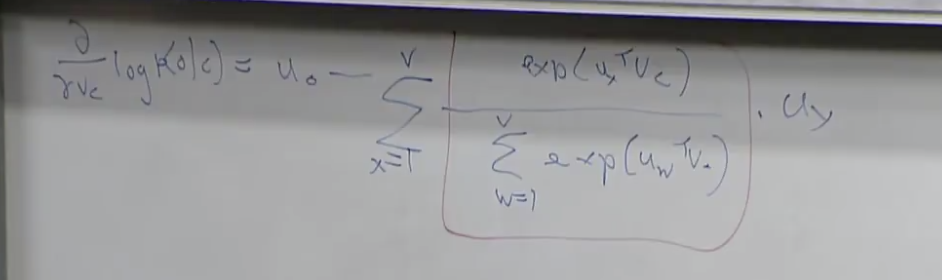 ∂/∂v_c log p(o|c) = u_o − Σ_{x=1}^{V} exp(u_x^T v_c) / Σ_{w=1}^{V} exp(u_w^T v_c) · u_x